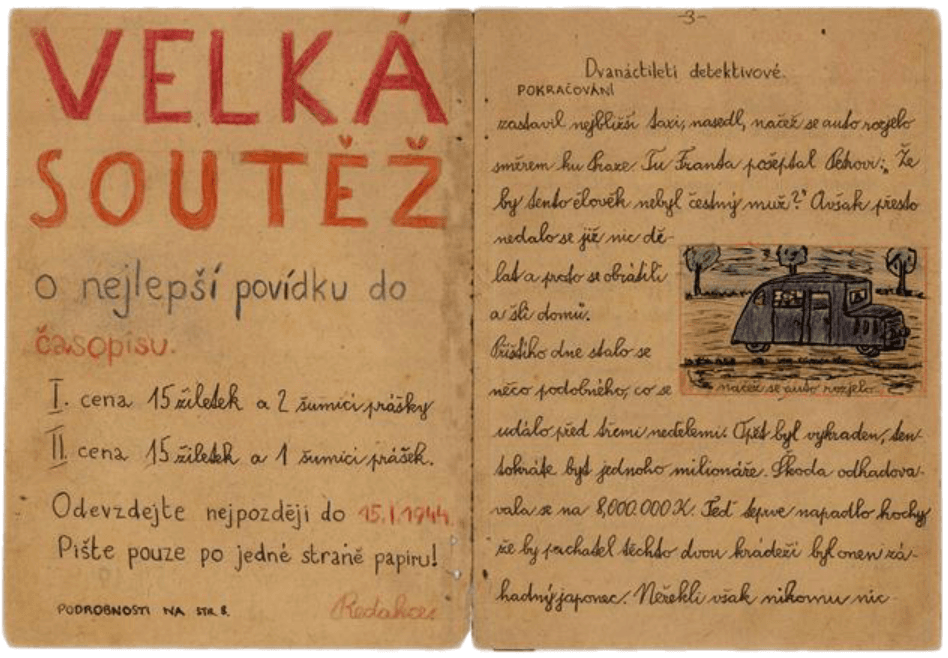 VELKÁ
SOUTĚŽ
o nejlepší povídku do
časopisu.
I. cena 15 žiletek a 2 šumicí prášky
II cena 15 žiletek a 1 šumicí prášek.
Odevzdejte nejpozději do 15.I.1944.
Pište pouze po jedné straně papíru!
PODROBNOSTI NA STR. 8.
Redakce.
-3-
Dvanáctiletí detektivové.
POKRAČOVÁNÍ
zastavil nejbližší taxi, nasedl, načež se auto rozjelo
směrem ku Praze. Tu Franta pošeptal Petrovi: „Že
by tento člověk nebyl čestný muž?" Avšak přesto
nedalo se již nic dě-
lat a proto se obrátili
a šli domů.
Příštího dne stalo se
něco podobného, co se
načež se auto rozjelo.
událo před třemi nedělemi. Opět byl vykraden, ten-
tokráte byt jednoho milionáře. Škoda odhadova-
vala se na 8,000.000 K. Teď teprve napadlo hochy
že by pachatel těchto dvou krádeží byl onen zá-
hadný japonec. Neřekli však nikomu nic